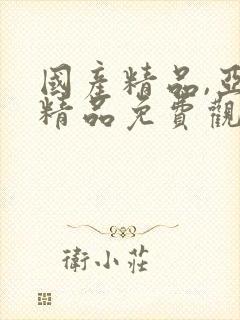 國產精品,亞
精品免費觀
衛小莊